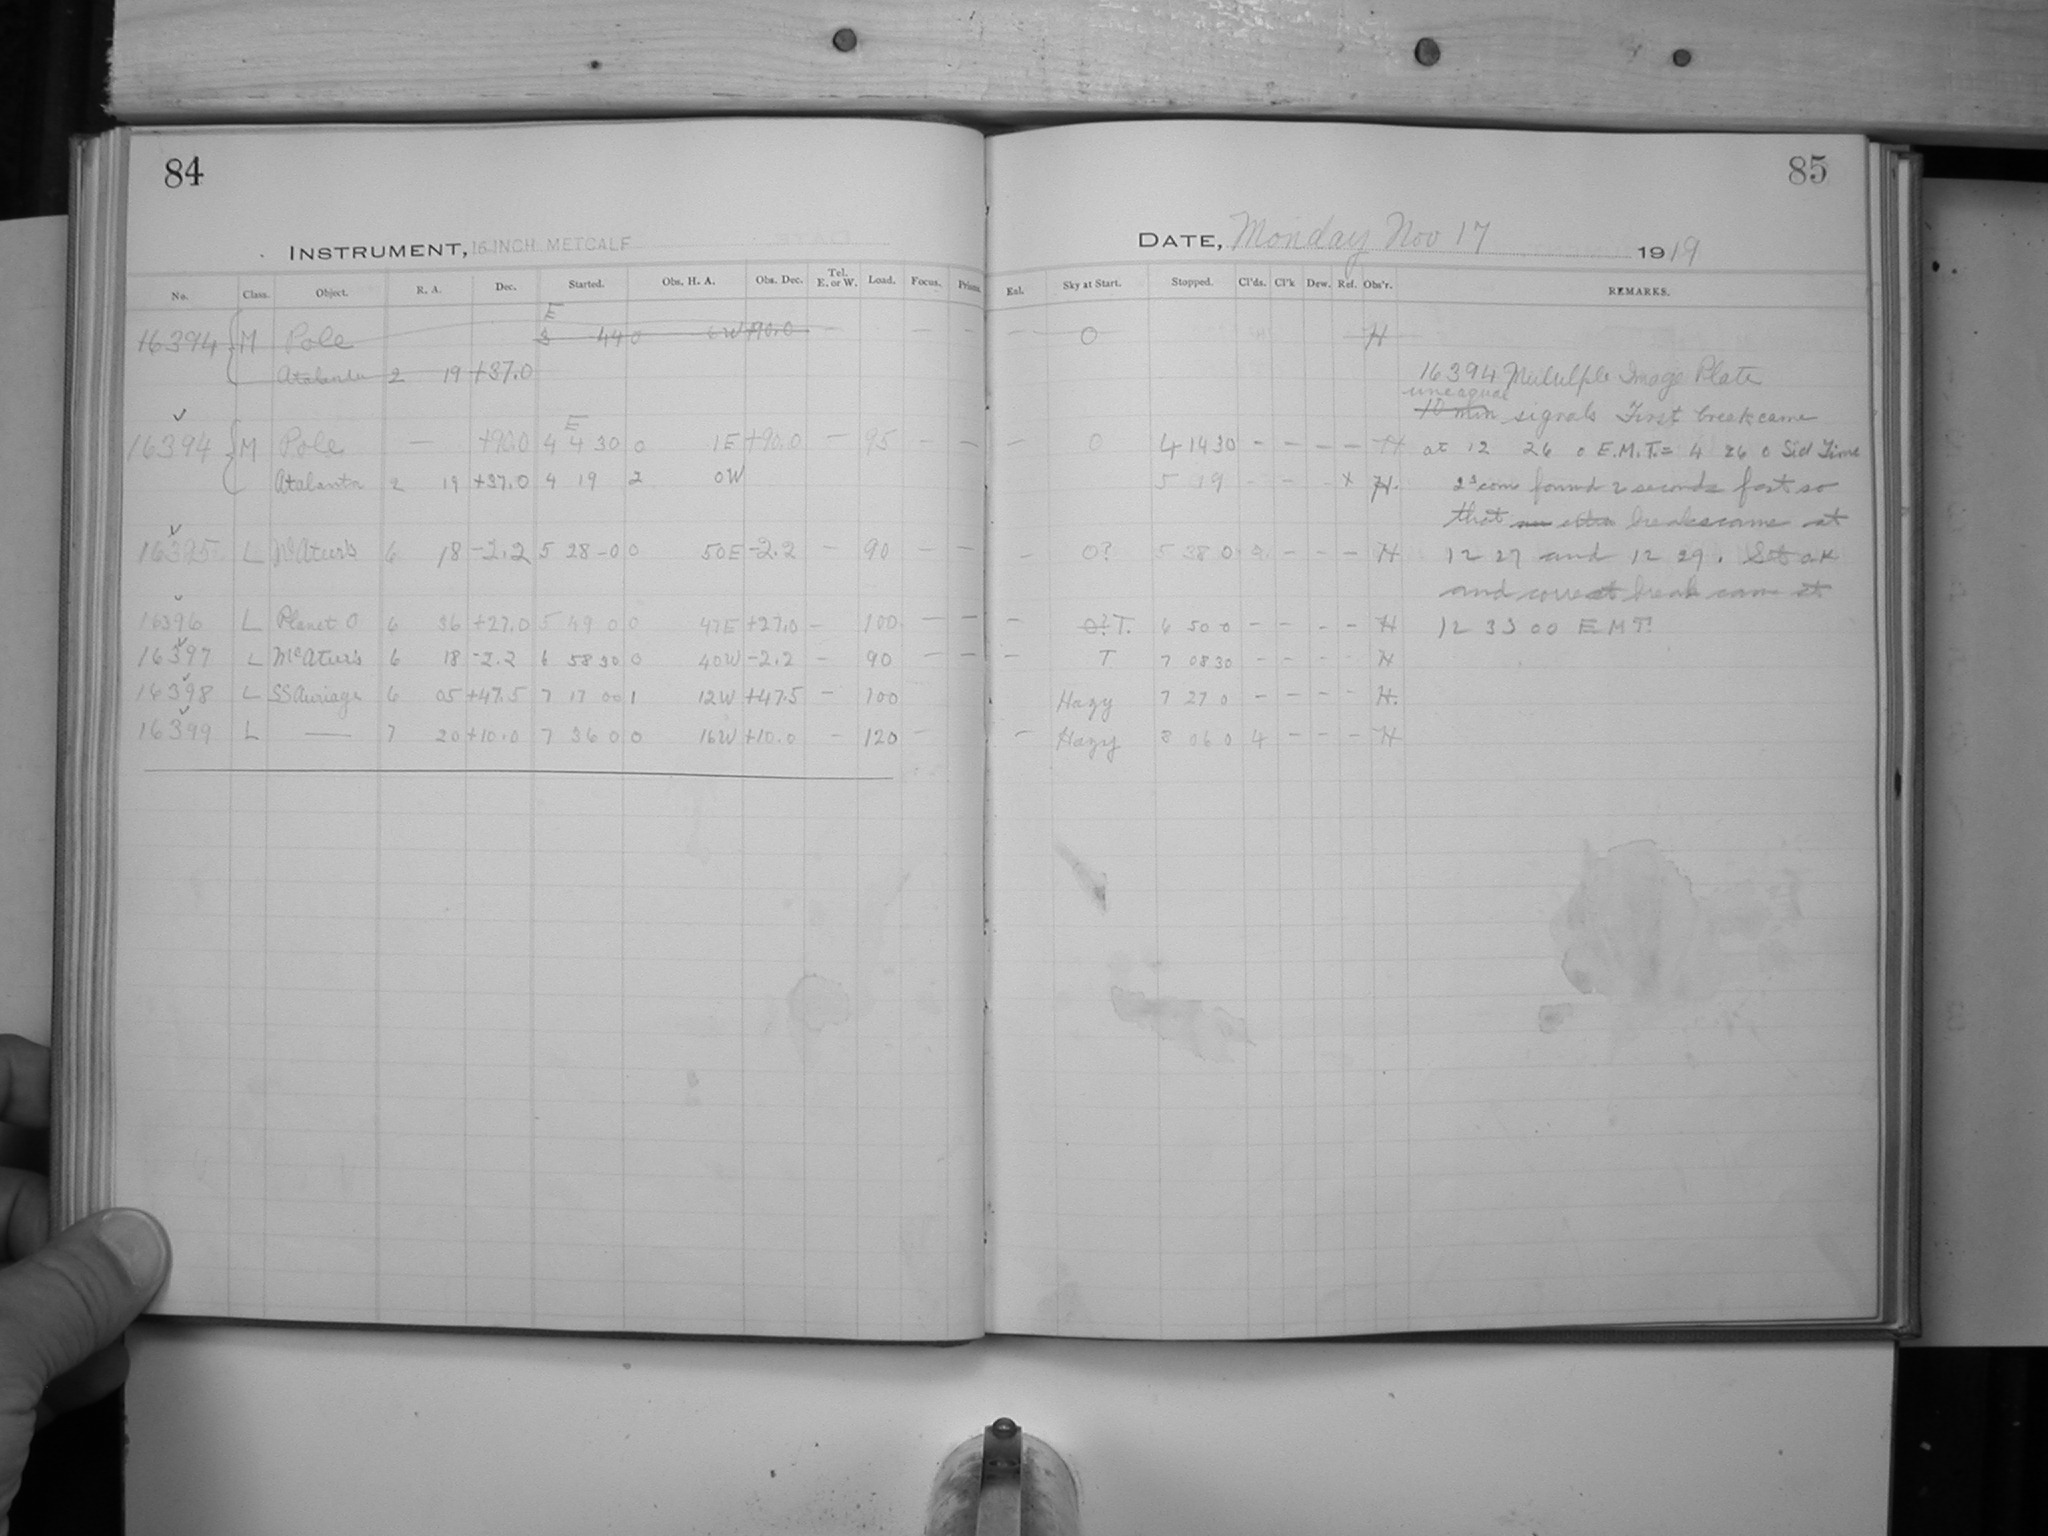 84
85
INSTRUMENT, 16 INCH METCALF
DATE, Monday Nov 17 1919
No. Class. Object. R. A. Dec. Started. Obs. H. A. Obs. Dec. Tel. E. or W. Load. Focus. Prisms. Eal. Sky at Start. Stopped. Cl'ds. Cl'k Dew. Ref. Obs'r. REMARKS.
E
16394 M Pole 3 44 0 6W +90.0 — — — — O H
Atalanta 2 19 +37.0 16394 Multiple Image Plate
unequal
10 min signals First break came
E
16394 M Pole — +90.0 4 4 30 0 1E +90.0 — 95 — — — O 4 14 30 — — — — H at 12 26 0 E.M.T. = 4 26 0 Sid Time
Atalanta 2 19 +37.0 4 19 2 0W 5 19 - - - x H. found 2 seconds fast so
that breaks came at
16395 L McAtur's 6 18 -2.2 5 28 -0 0 50E -2.2 — 90 — — — O? 5 38 0 — — — H 12 27 and 12 29. Set ok
and correct break came at
16396 L Planet O 6 36 +27.0 5 49 0 0 47E +27.0 — 100 — — — O? T. 6 50 0 — — — — H 12 33 00 E M T.
16397 L McAtur's 6 18 -2.2 6 58 30 0 40W -2.2 — 90 — — — T 7 08 30 — — — — H
16398 L SS Aurigae 6 05 +47.5 7 17 00 1 12W +47.5 — 100 Hazy 7 27 0 — — — — H.
16399 L — 7 20 +10.0 7 36 0 0 16W +10.0 — 120 — — Hazy 8 06 0 4 — — — H